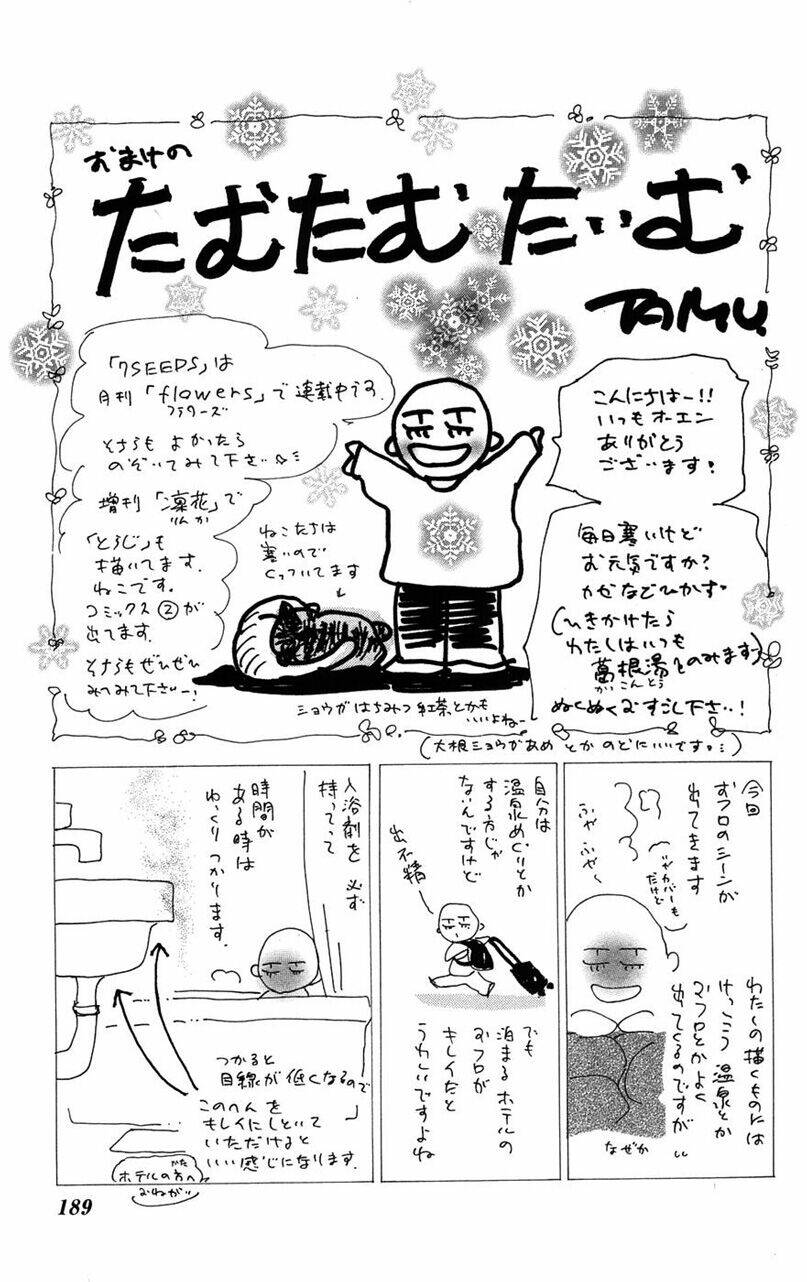 おまけの
たむたむたいむ
TAMU.
こんにちはー!!
いつもオーエン
ありがとう
ございます!
毎日寒いけど
お元気ですか?
かぜなどひかず…
(ひきかけたら
わたしはいつも
葛根湯をのみます)
かっこんとう
ぬくぬくおすごし下さい!
「7SEEDS」は
月刊「flowers」で連載中です。
フラワーズ
そちらもよかったら
のぞいてみて下さい☆…
増刊「凛花」で
りんか
「とらじ」も
描いてます。
ねこです。
コミックス②が
出てます。
そちらもぜひぜひ
みてみて下さいー!
ねこたちは
寒いので
くっついてます
ショウガはちみつ紅茶とかも
いいよねー
(大根ショウがあめとかのどにいいです…)
今回
おフロのシーンが
出てきます
カバーも
だけど
ふや ふや〜
わたしの描くものには
けっこう温泉とか
おフロとかよく
出てくるのですが…
なぜか
自分は
温泉めぐりとか
する方じゃ
ないんですけど
出不精
でも
泊まるホテルの
おフロが
キレイだと
うれしいですよね
入浴剤を必ず
持ってって
時間が
ある時は
ゆっくりつかります。
つかると
目線が低くなるので
このへんを
キレイにしといて
いただけると
いい感じになります。
ホテルの方へ
かた
おねがい
189